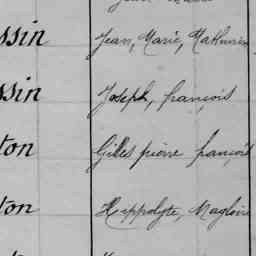 ssin Jean, Marie, Mathurin
ssin Joseph, françois
ton Gilles pierre françois
ton Hippolyte, Magloire